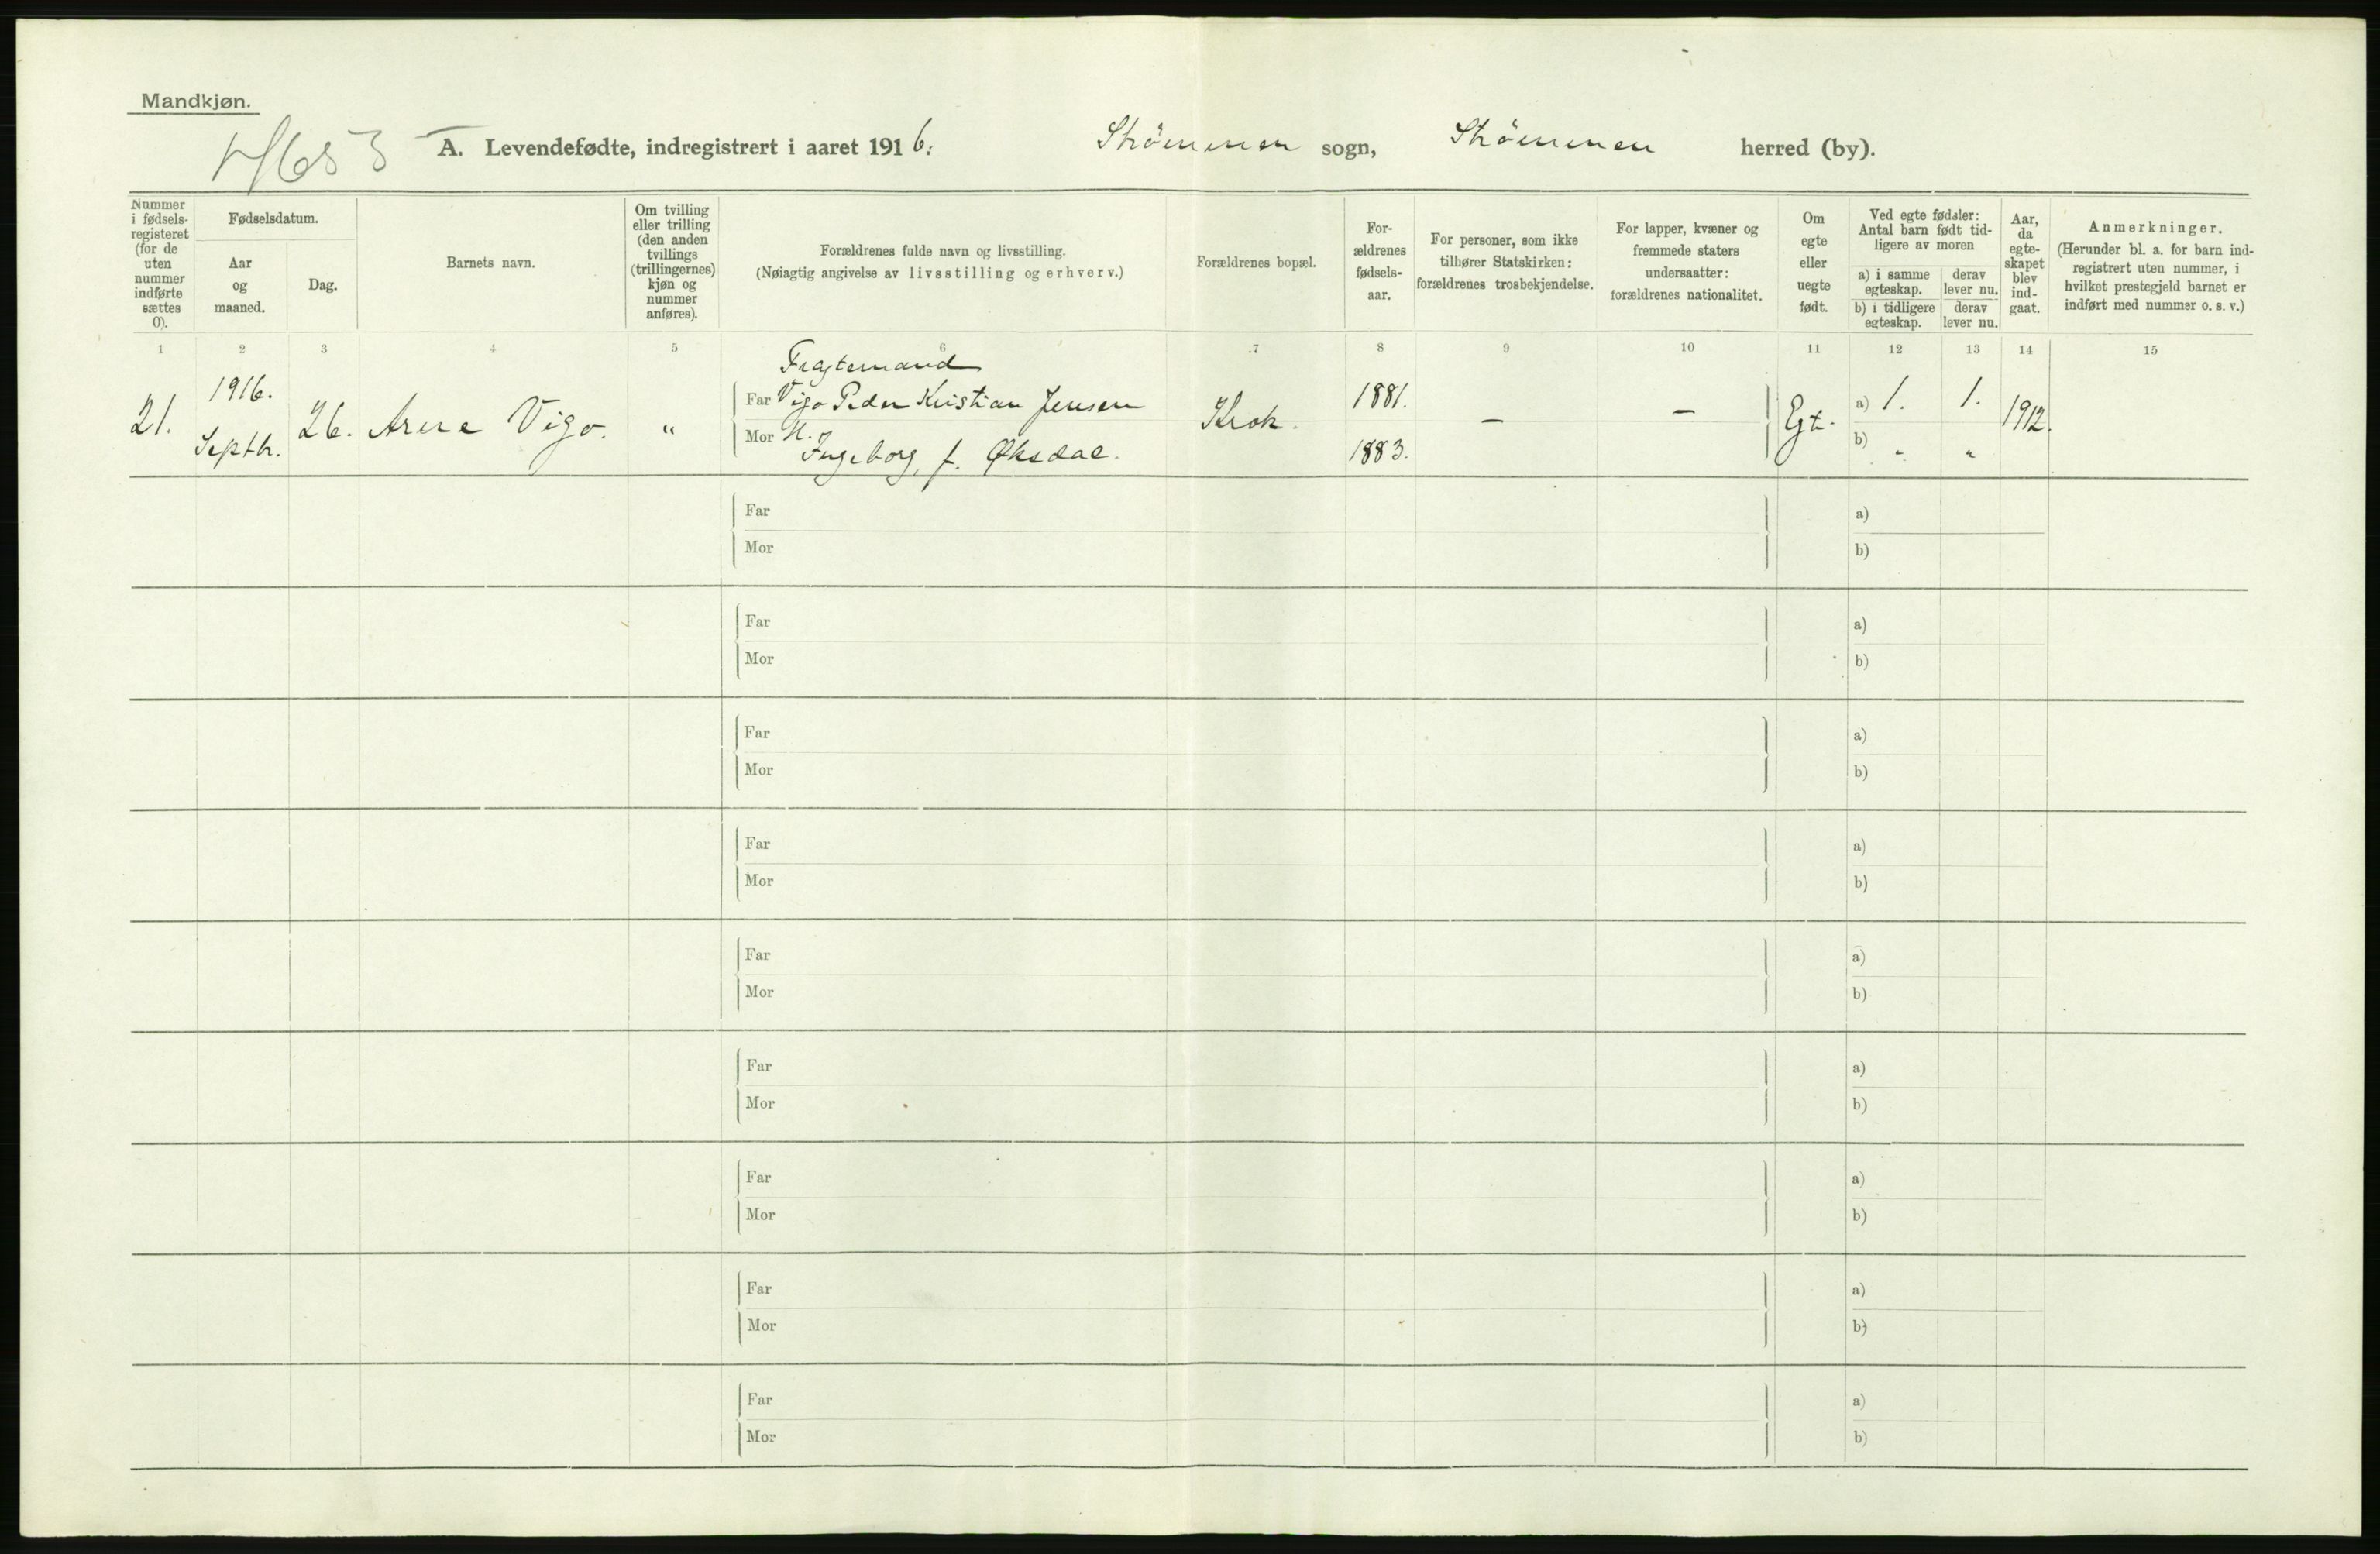 Mandkjøn.
A. Levendefødte, indregistrert i aaret 1916: Strömmen sogn, Strömmen herred (by).
Nummer i fødsels- registeret (for de uten nummer indførte sættes 0).
Fødselsdatum.
Aar og maaned.
Dag.
Barnets navn.
Om tvilling eller trilling (den anden tvillings (trillingernes) kjøn og nummer anføres).
Forældrenes fulde navn og livsstilling.
(Nøiagtig angivelse av livsstilling og erhverv.)
Forældrenes bopæl.
For- ældrenes fødsels- aar.
For personer, som ikke tilhører Statskirken: forældrenes trosbekjendelse.
For lapper, kvæner og fremmede staters undersaatter: forældrenes nationalitet.
Om egte eller uegte født.
Ved egte fødsler: Antal barn født tid- ligere av moren
a) i samme egteskap.
derav lever nu.
b) i tidligere egteskap.
derav lever nu.
Aar, da egte- skapet blev ind- gaat.
Anmerkninger.
(Herunder bl. a. for barn ind- registrert uten nummer, i hvilket prestegjeld barnet er indført med nummer o. s. v.)
1 2 3 4 5 6 7 8 9 10 11 12 13 14 15
Fragtemand
21. 1916. Septb. 26. Arne Vigo. "
Far Vigo Peder Kristian Jensen
Mor H. Ingeborg, f. Øksdal.
Krok. 1881. 1883. – – Egt. a) 1. 1. b) " " 1912.
Far a)
Mor b)
Far a)
Mor b)
Far a)
Mor b)
Far a)
Mor b)
Far a)
Mor b)
Far a)
Mor b)
Far a)
Mor b)
Far a)
Mor b)
Far a)
Mor b)